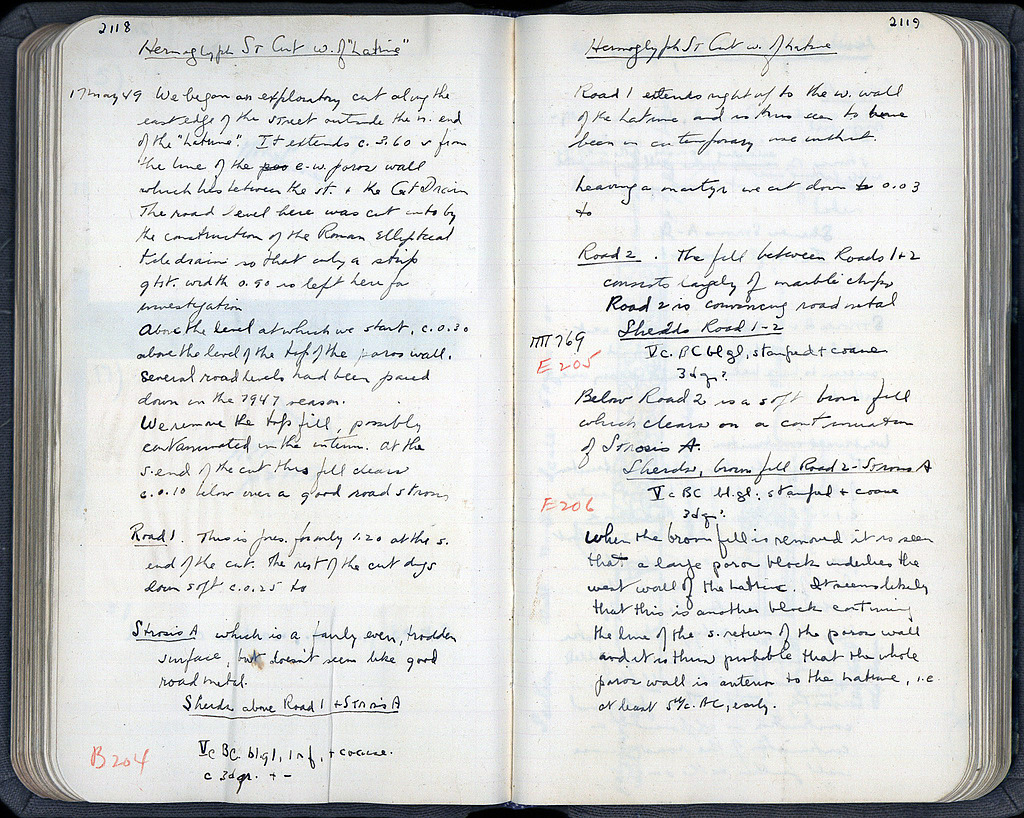 2118
Hermoglyph St Cut w. of "Latrine"
17 May 49 We began an exploratory cut along the
east edge of the street outside the n. end
of the "Latrine". It extends c. 3.60 s from
the line of the poo e-w poros wall
which lies between the st. + the Gt Drain
The road level here was cut into by
the construction of the Roman Elliptical
tile drain so that only a strip
gt. width 0.90 is left here for
investigation
Above the level at which we start, c. 0.30
above the level of the top of the poros wall,
several road levels had been passed
down in the 1947 season.
We remove the top fill, possibly
contaminated in the interim. At the
s. end of the cut this fill clears
c. 0.10 below over a good road strosis
Road 1. This is pres. for only 1.20 at the s.
end of the cut. The rest of the cut digs
down soft c. 0.25 to
Strosis A which is a fairly even, trodden
surface, but doesn't seem like good
road metal.
Sherds above Road 1 + Strosis A
V c BC. bl gl, 1 r f, + coarse.
B 204
c 3d gr. + -
2119
Hermoglyph St Cut w. of Latrine
Road 1 extends right up to the w. wall
of the Latrine and is thus seen to have
been in contemporary use with it.
Leaving a martyr we cut down to 0.03
to
Road 2. The fill between Roads 1+2
consists largely of marble chips
Road 2 is convincing road metal
Sherds Road 1-2
ΠΠ 769
V c. BC bl gl, stamped + coarse
E 205
3d gr?
Below Road 2 is a soft brown fill
which clears on a continuation
of Strosis A.
Sherds, brown fill Road 2 - Strosis A
V c BC bl. gl. stamped + coarse
E 206
3d gr?
When the brown fill is removed it is seen
that a large poros block underlies the
west wall of the Latrine. It seems likely
that this is another block continuing
the line of the s. return of the poros wall
and it is thus probable that the whole
poros wall is anterior to the Latrine, i.e.
at least 5th c. BC, early.